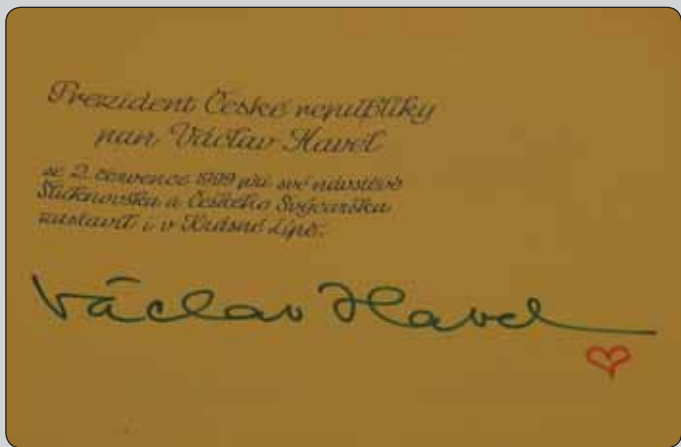 Prezident České republiky
pan Václav Havel
se 2. července 1999 při své návštěvě
Šluknovska a Českého Švýcarska
zastavil i v Krásné Lípě.
Václav Havel